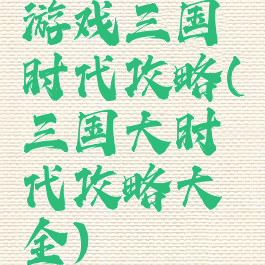 游戏三国
时代攻略(
三国大时
代攻略大
全)